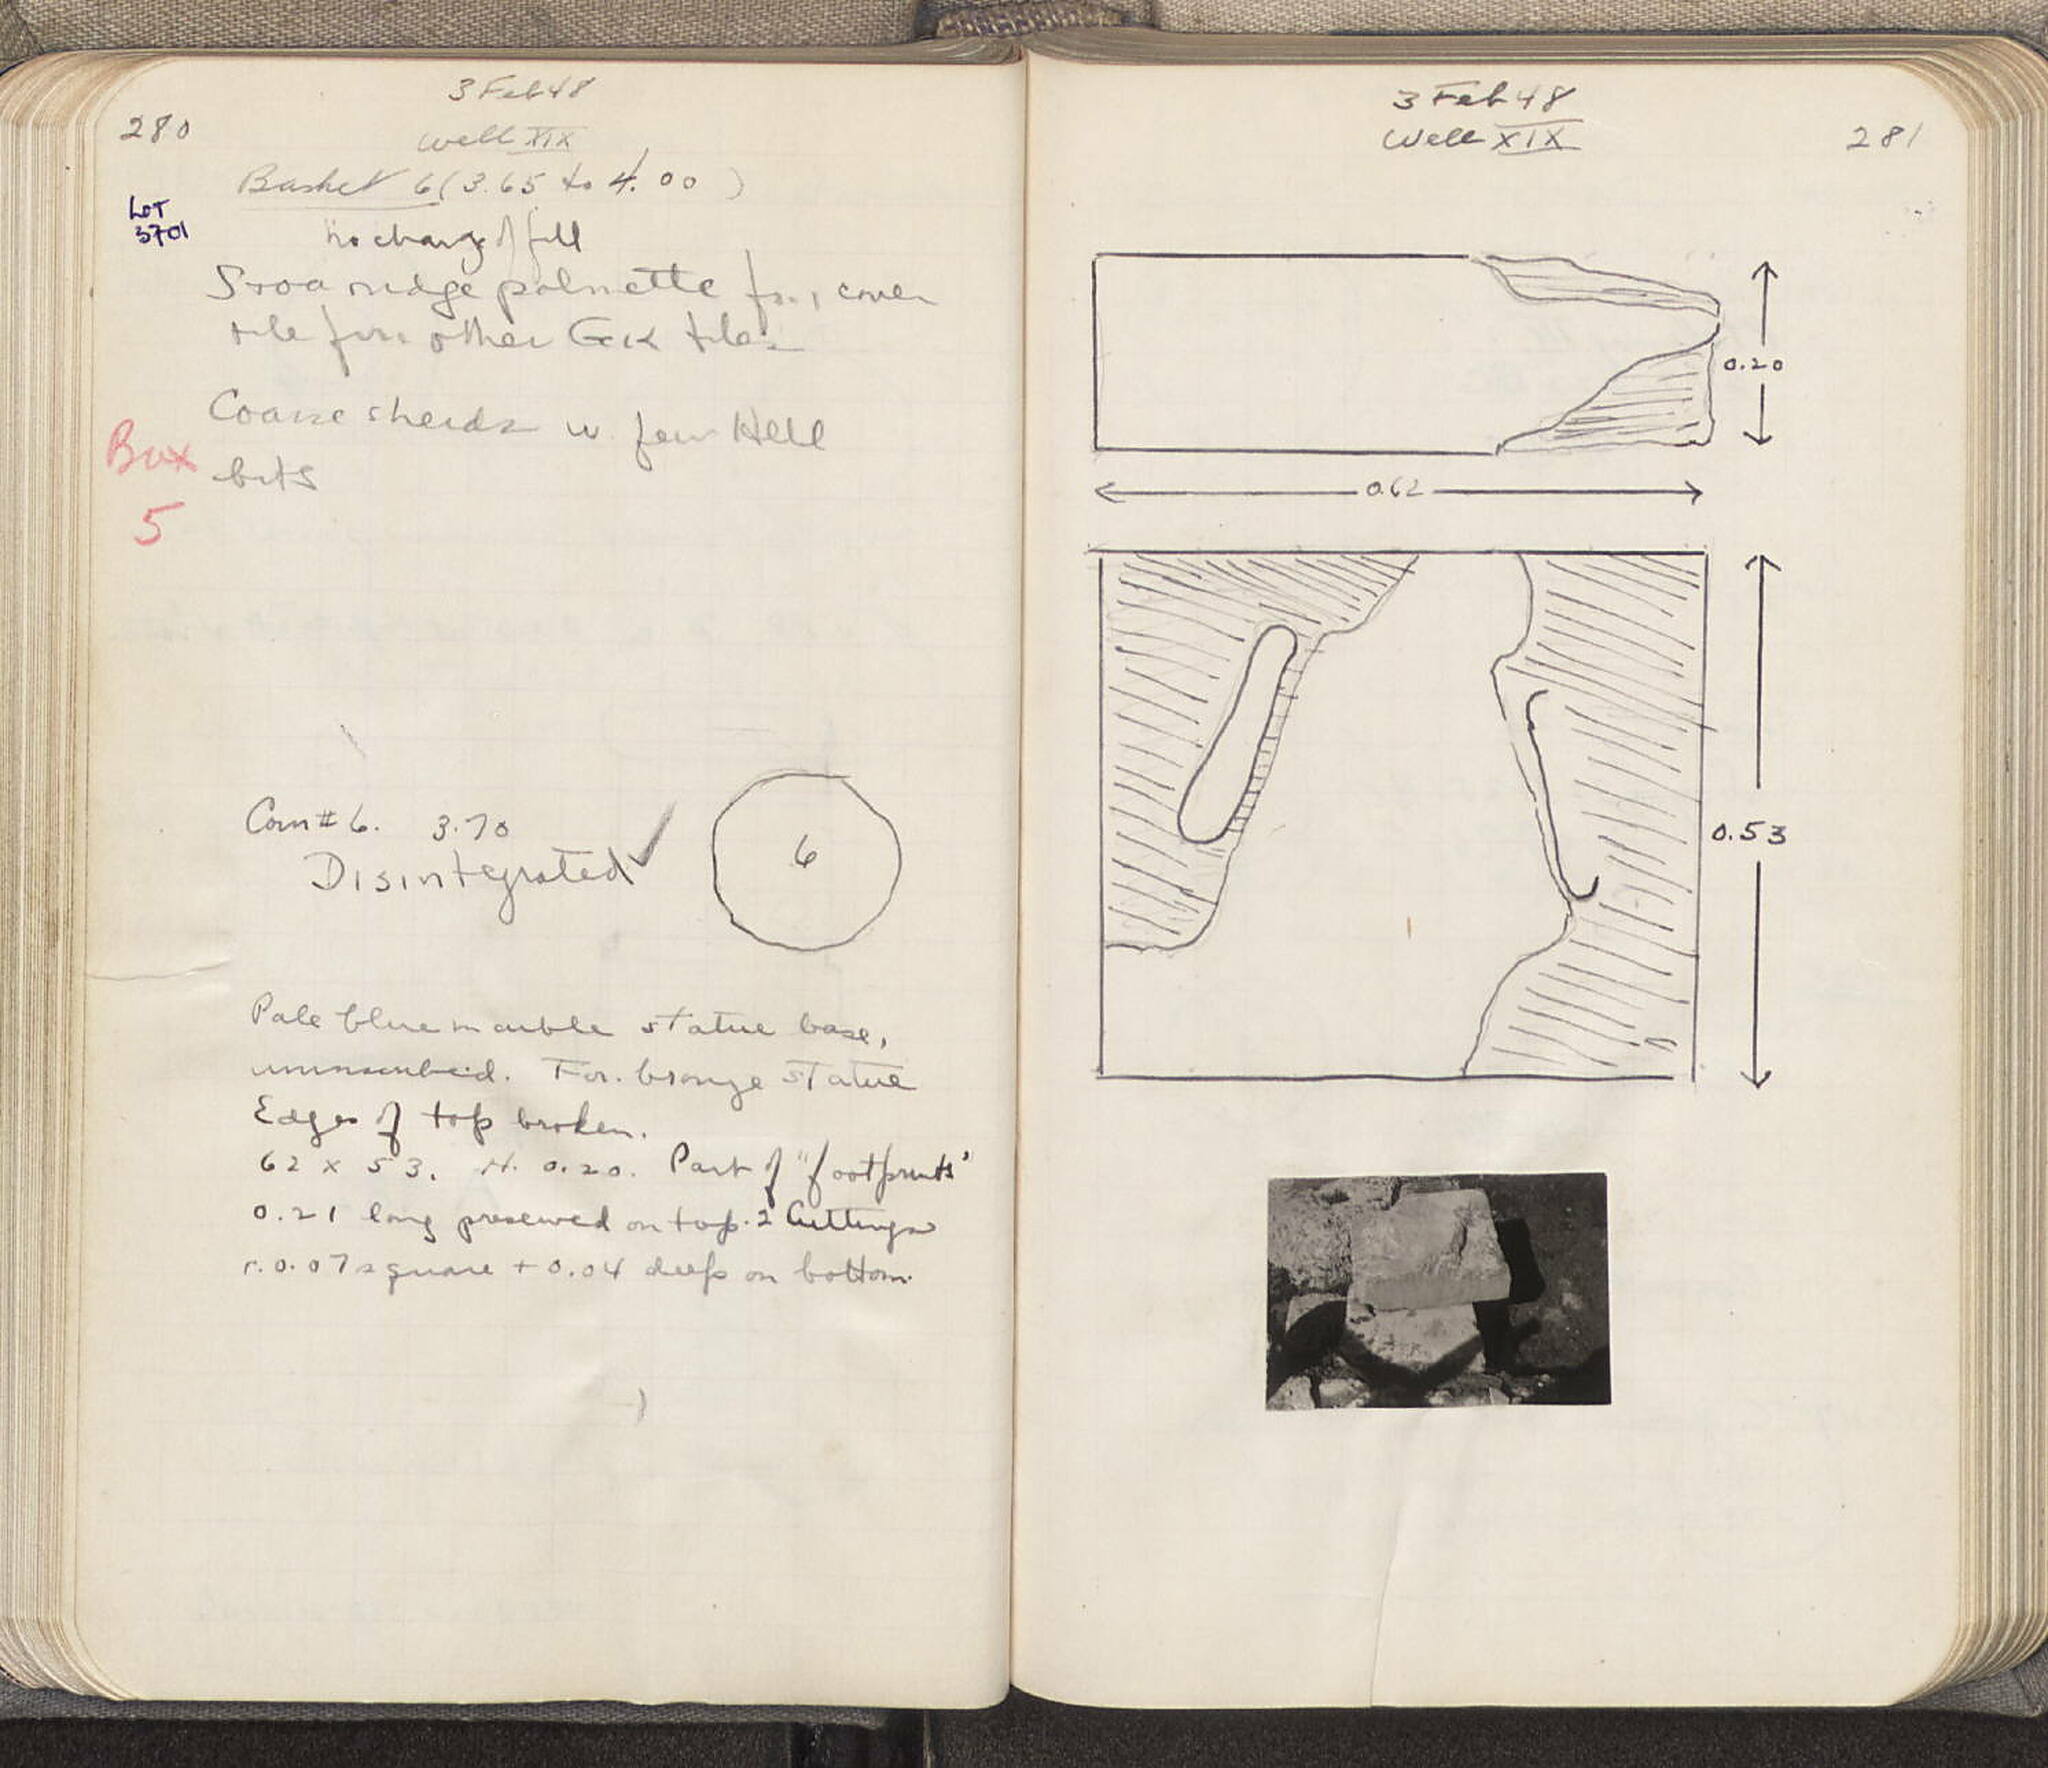 280
3 Feb 48
Well XIX
Basket 6 (3.65 to 4.00)
Lot
3701
No change of fill
Stoa ridge palmette frr, cover
tile frr other Gk tiles
Coarse sherds w. few Hell
bits
Box
5
Coin # 6. 3.70
Disintegrated ✓
6
Pale blue marble statue base,
uninscribed. For bronze statue
Edges of top broken.
62 x 53. H. 0.20. Part of "footprints"
0.21 long preserved on top. 2 Cuttings
c. 0.07 square + 0.04 deep on bottom.
3 Feb 48
Well XIX
281
0.20
0.62
0.53